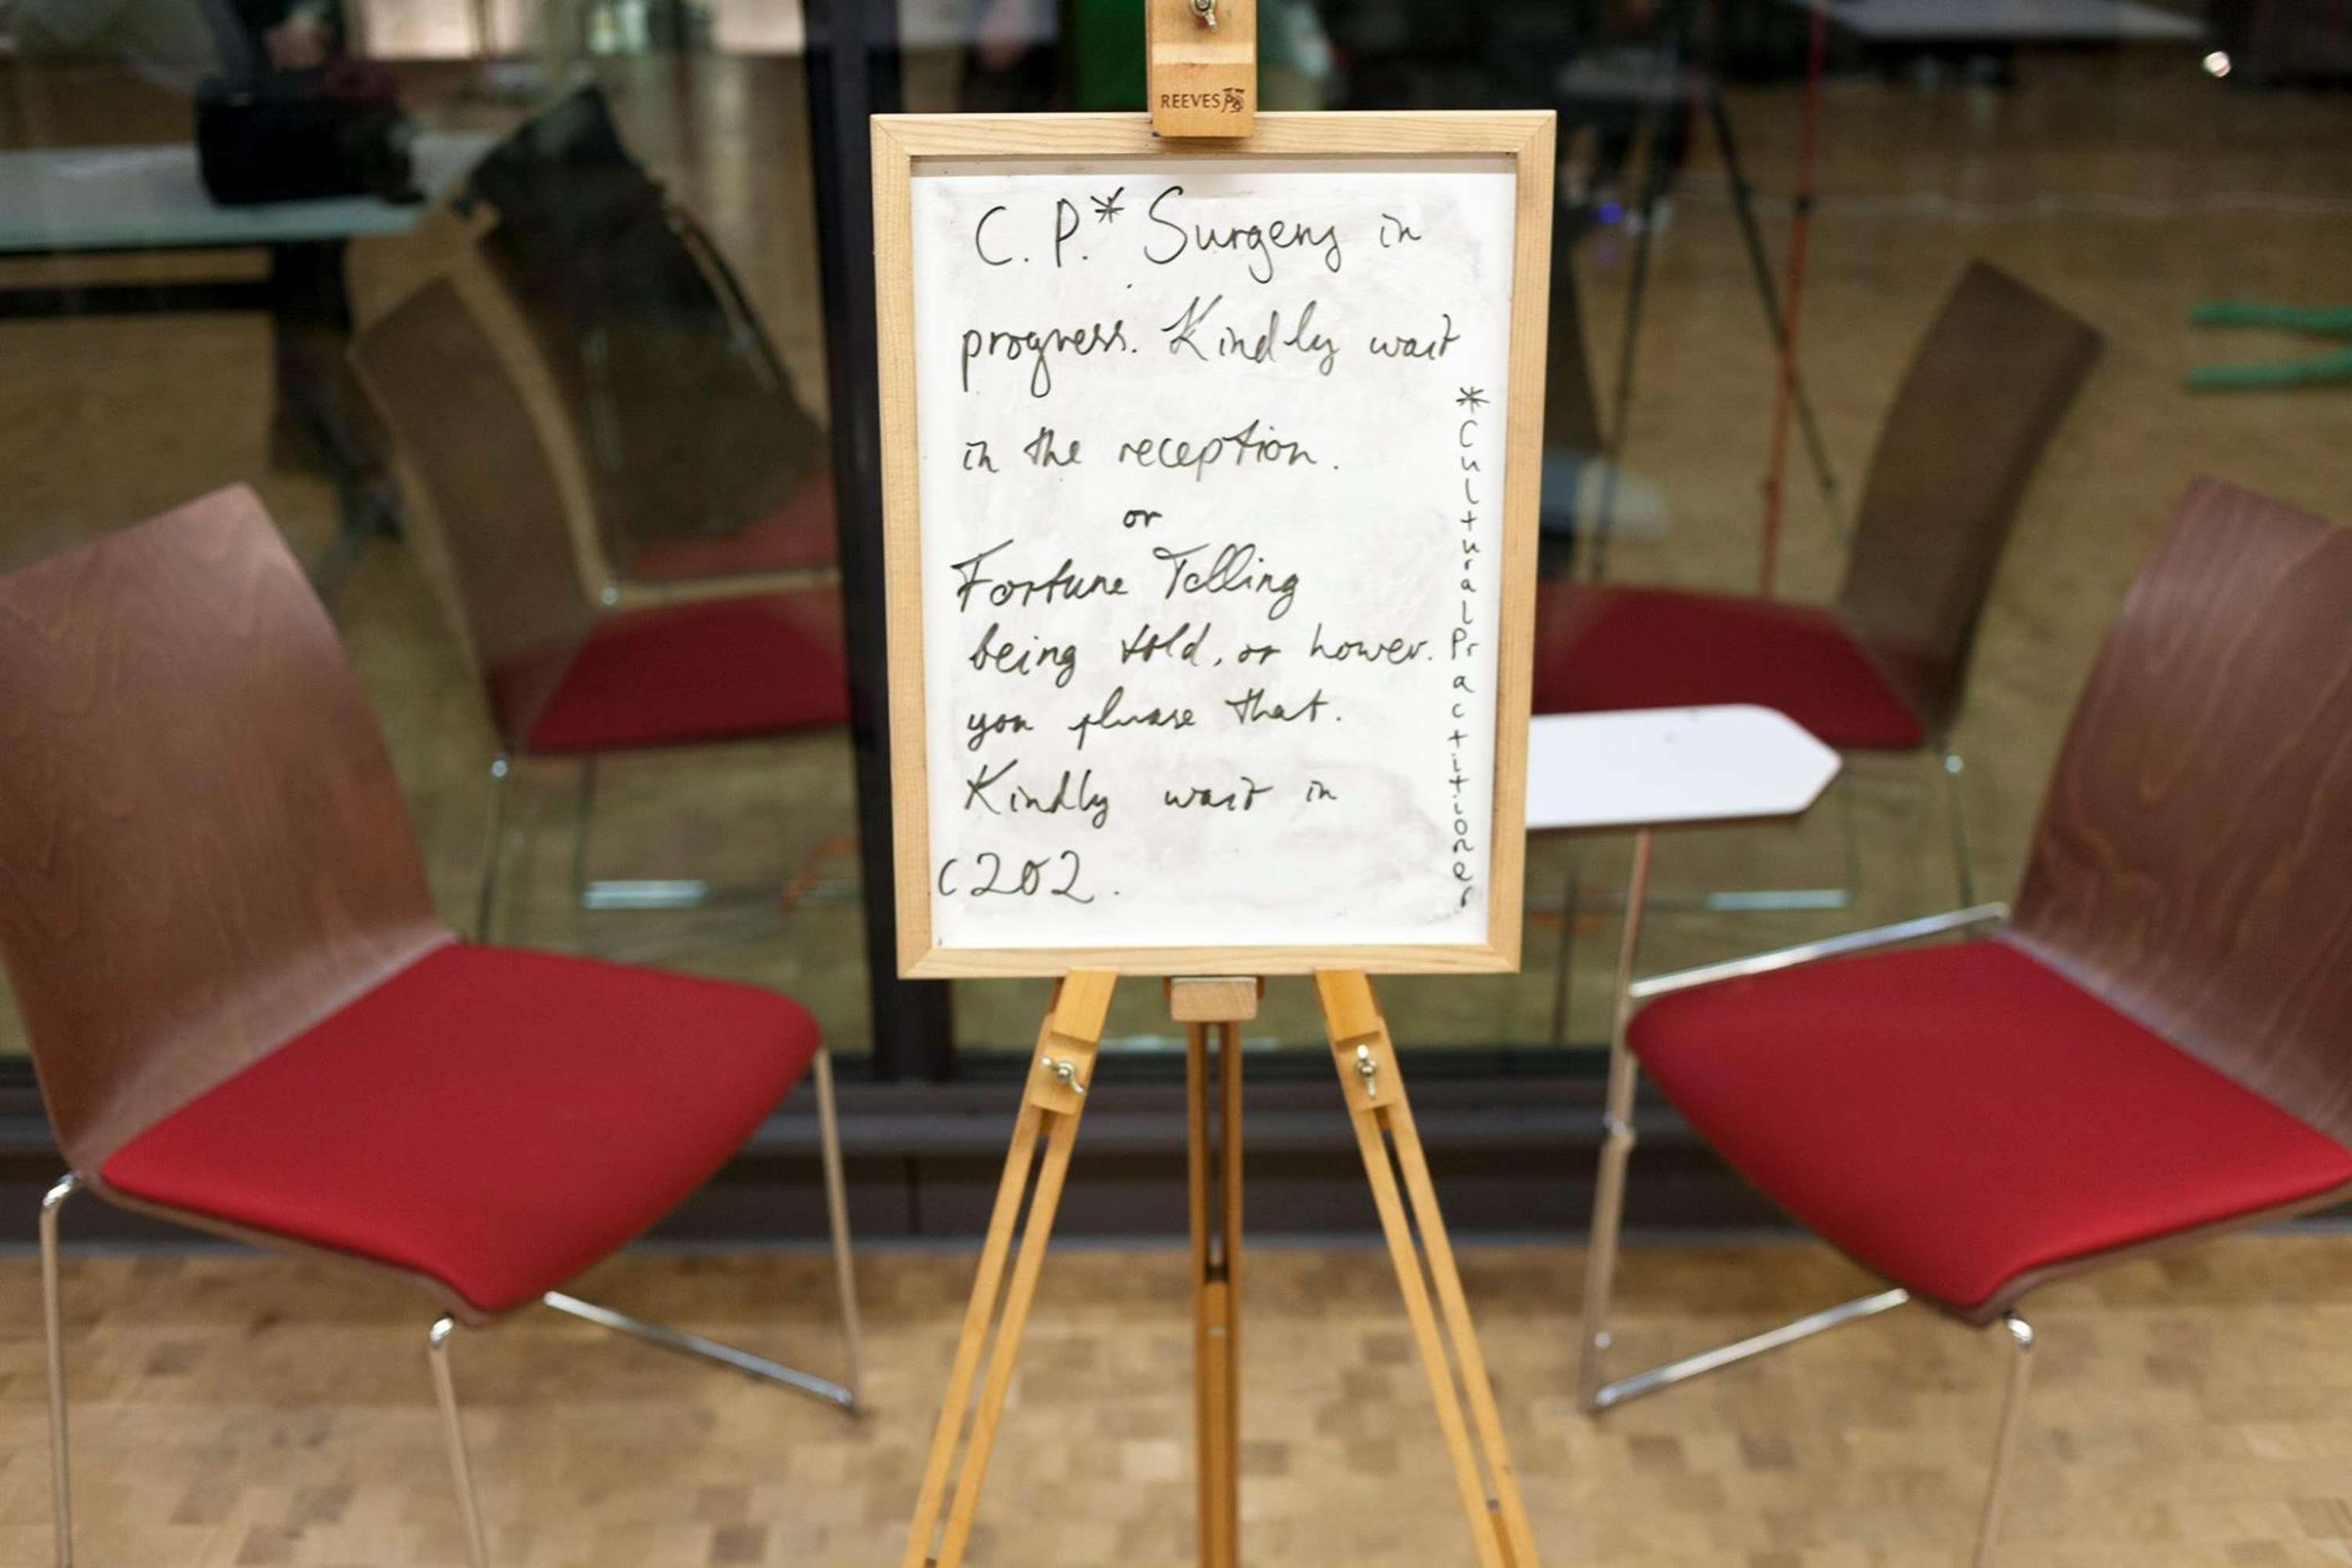 REEVES
C.P.* Surgery in
progress. Kindly wait
in the reception.
or
Fortune Telling
being told, or hower.
you phrase that.
Kindly wait in
C202.
*Cultural Practitioner